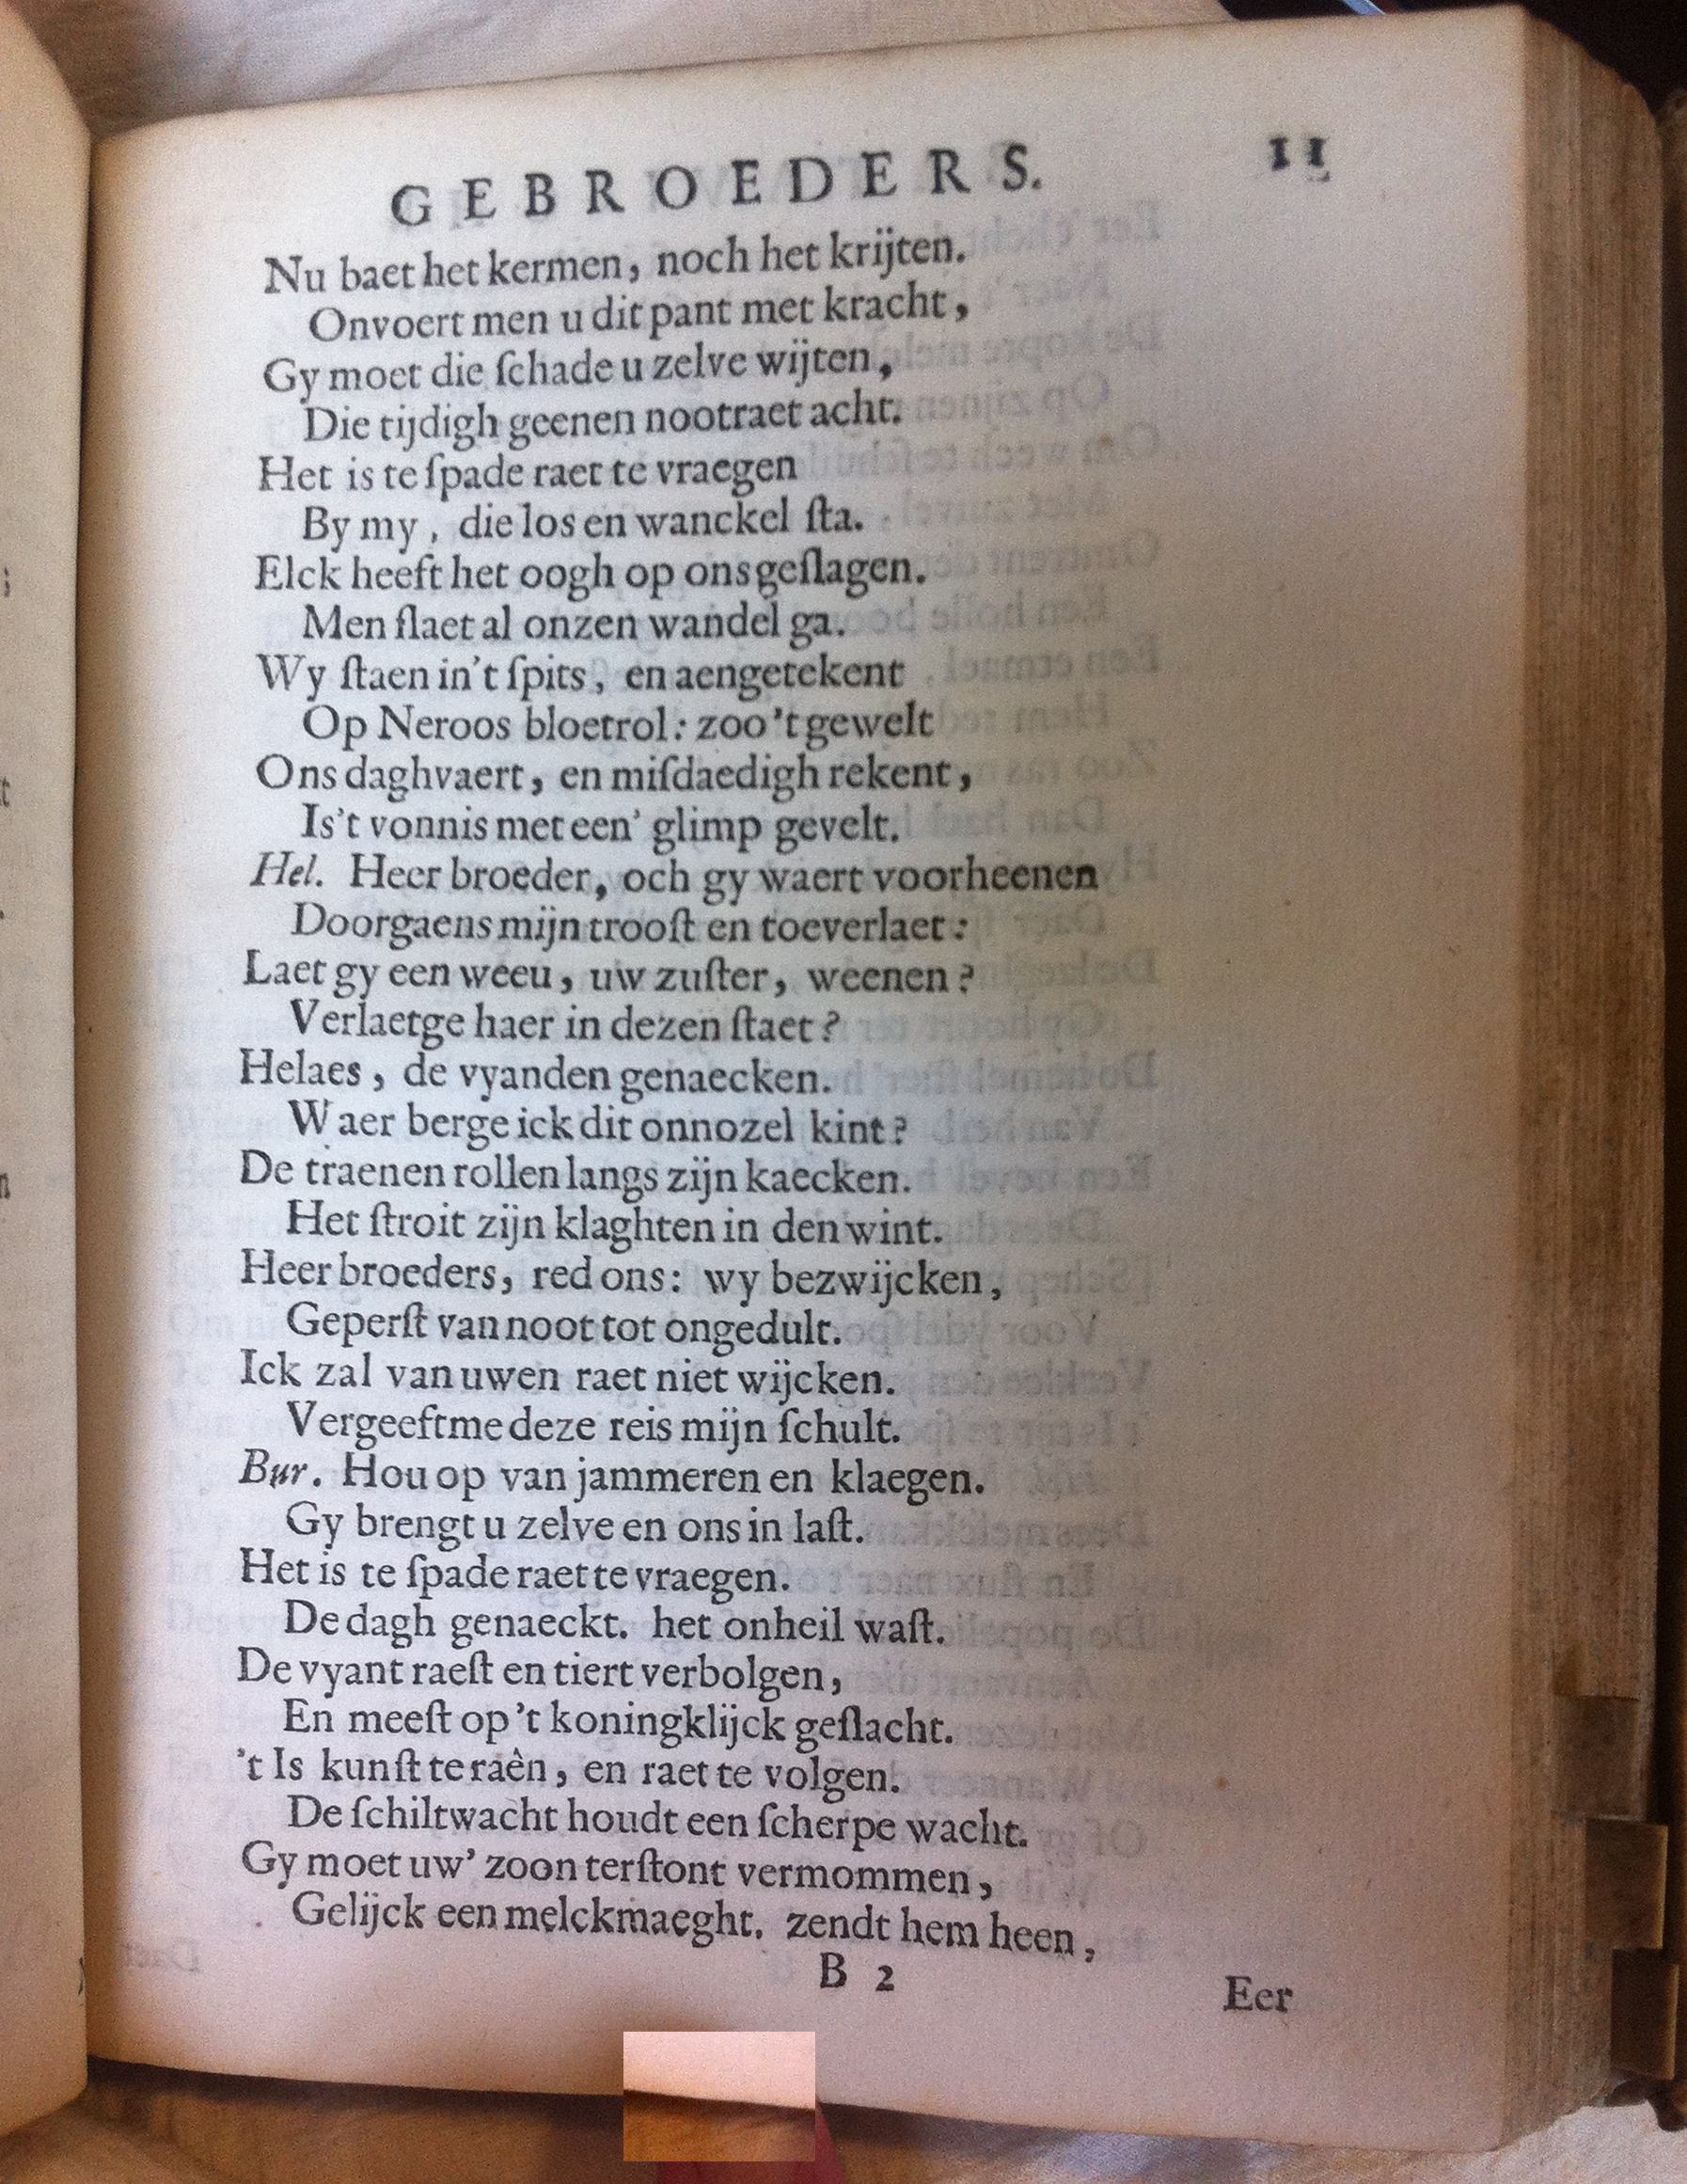 GEBROEDERS. 11
Nu baet het kermen, noch het krijten.
Onvoert men u dit pant met kracht,
Gy moet die ſchade u zelve wijten,
Die tijdigh geenen nootraet acht.
Het is te ſpade raet te vraegen
By my, die los en wanckel ſta.
Elck heeft het oogh op ons geſlagen.
Men ſlaet al onzen wandel ga.
Wy ſtaen in't ſpits, en aengetekent
Op Neroos bloetrol: zoo 't gewelt
Ons daghvaert, en miſdaedigh rekent,
Is't vonnis met een' glimp gevelt.
Hel. Heer broeder, och gy waert voorheenen
Doorgaens mijn trooſt en toeverlaet:
Laet gy een weeu, uw zuſter, weenen?
Verlaetge haer in dezen ſtaet?
Helaes, de vyanden genaecken.
Waer berge ick dit onnozel kint?
De traenen rollen langs zijn kaecken.
Het ſtroit zijn klaghten in den wint.
Heer broeders, red ons: wy bezwijcken,
Geperſt van noot tot ongedult.
Ick zal van uwen raet niet wijcken.
Vergeeft me deze reis mijn ſchult.
Bur. Hou op van jammeren en klaegen.
Gy brengt u zelve en ons in laſt.
Het is te ſpade raet te vraegen.
De dagh genaeckt. het onheil waſt.
De vyant raeſt en tiert verbolgen,
En meeſt op 't koningklijck geſlacht.
't Is kunſt te raên, en raet te volgen.
De ſchiltwacht houdt een ſcherpe wacht.
Gy moet uw' zoon terſtont vermommen,
Gelijck een melckmaeght. zendt hem heen,
B 2
Eer